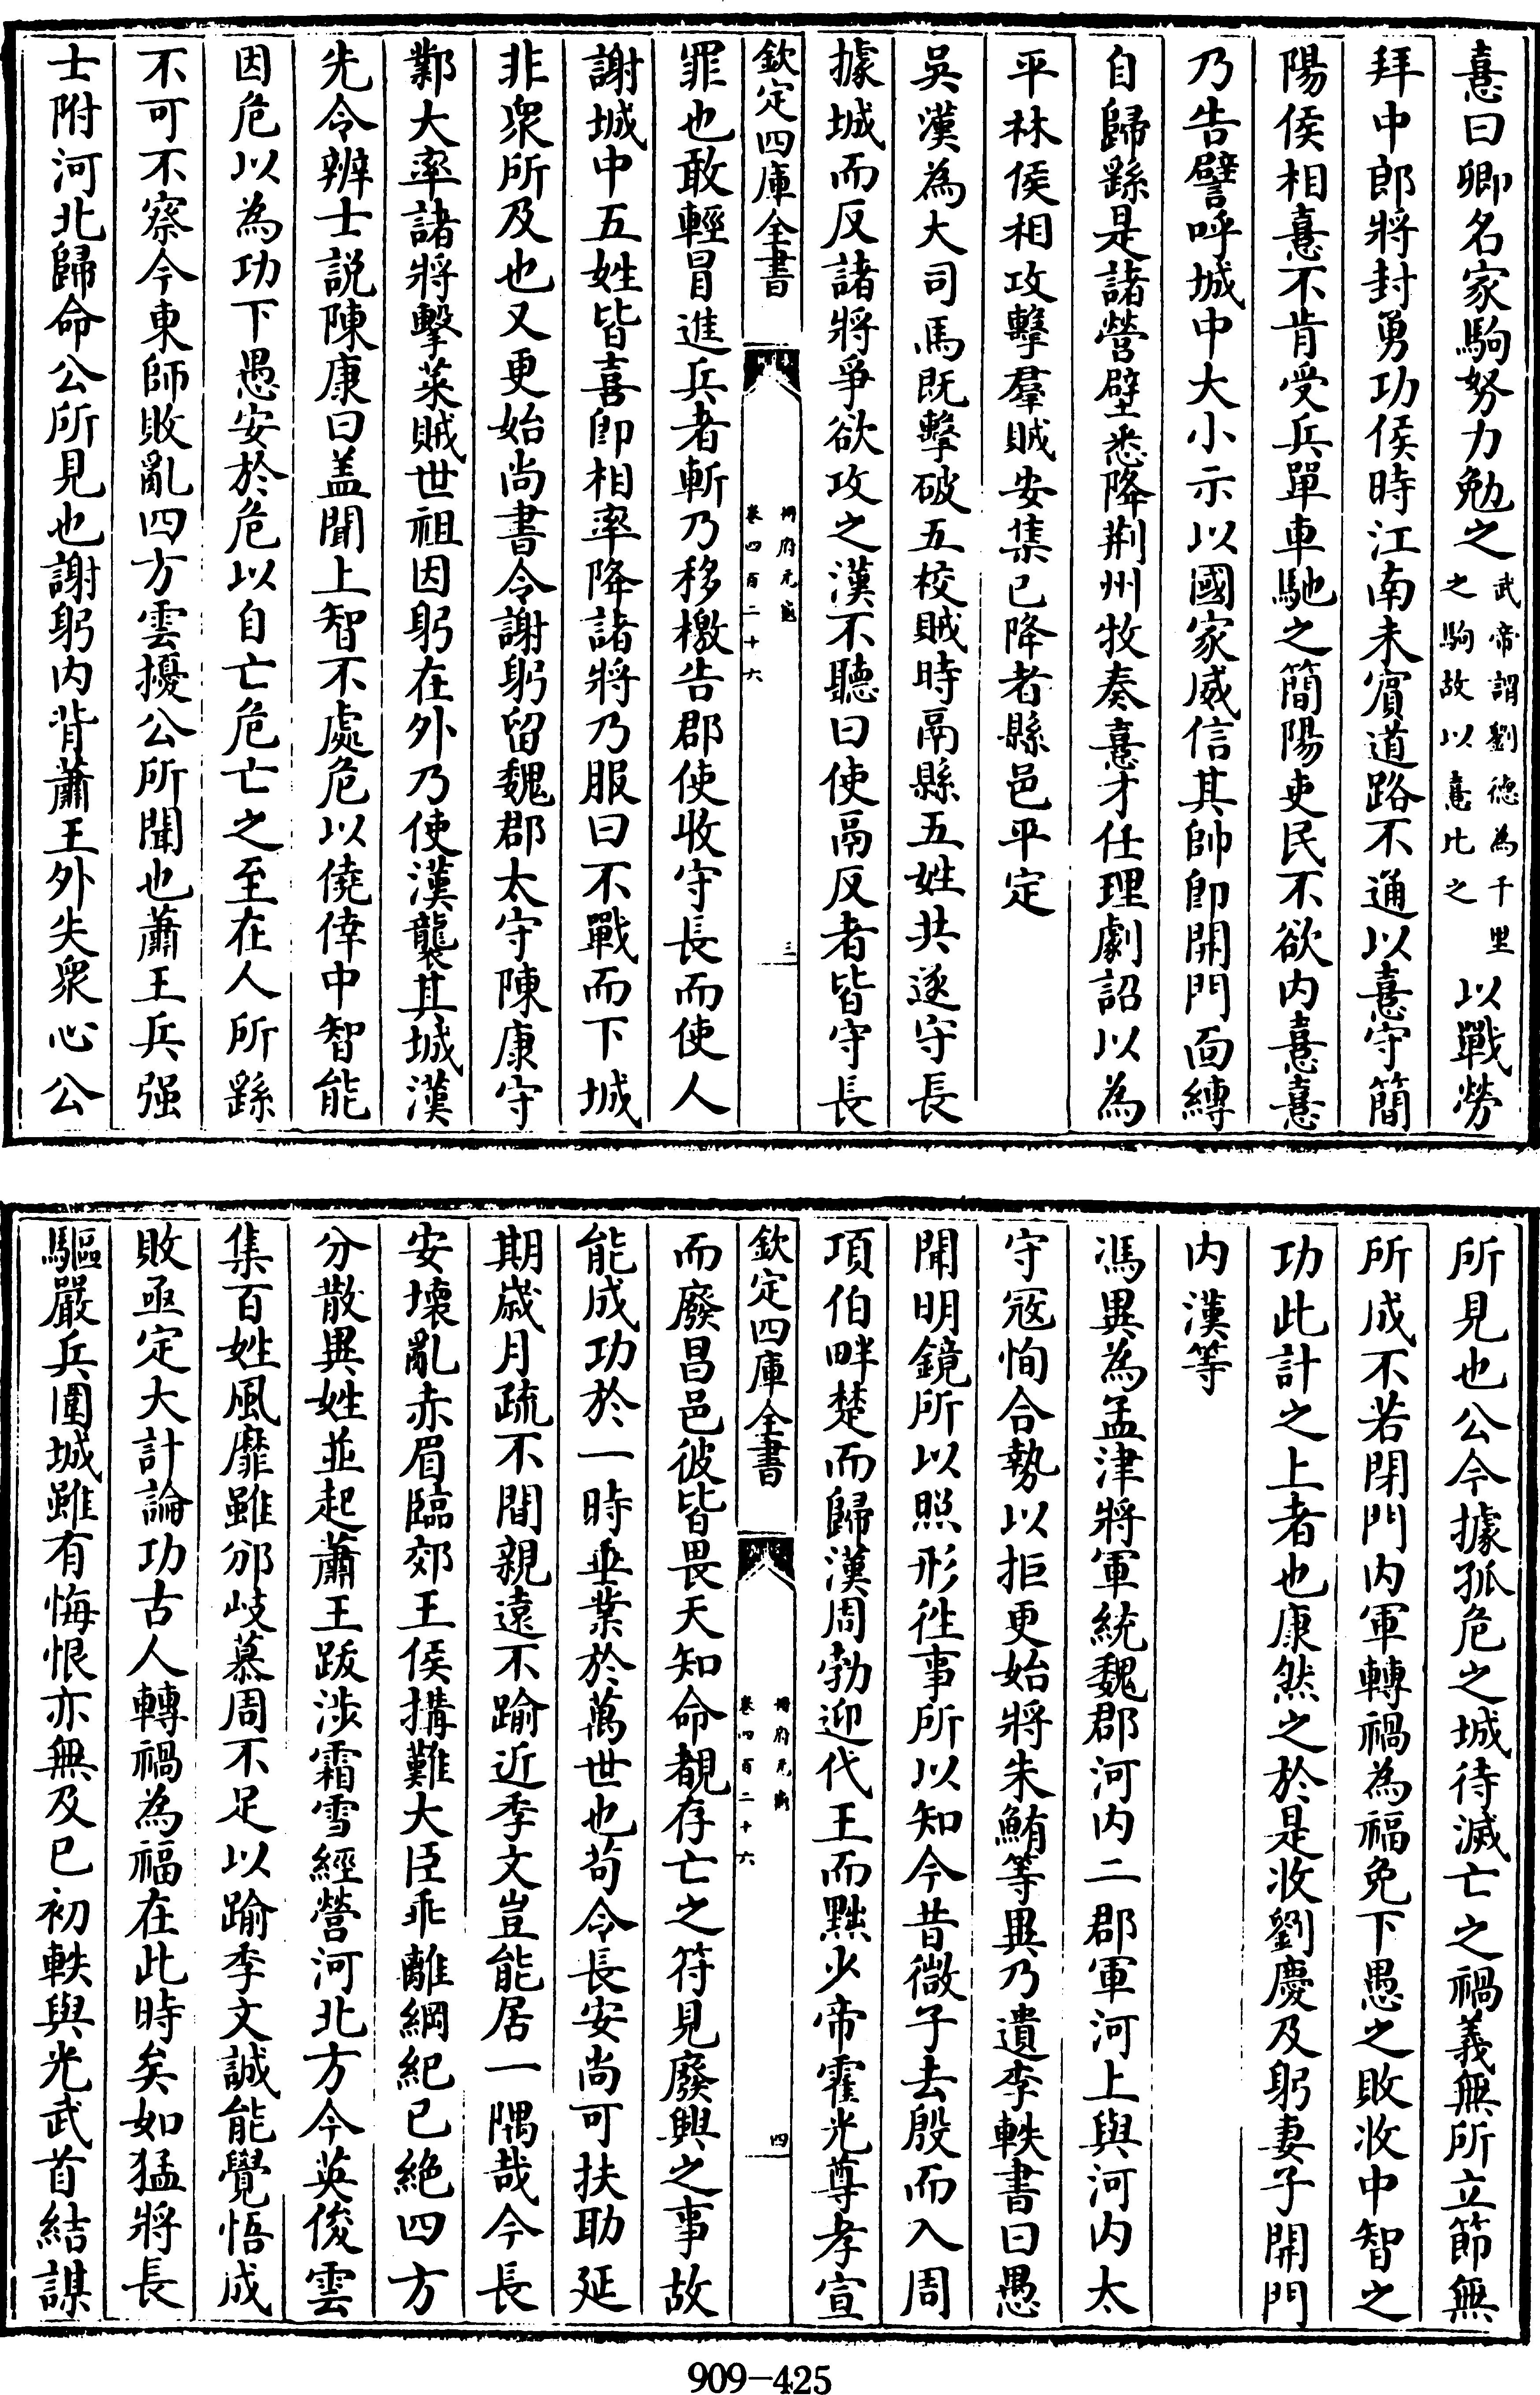 憙曰卿名家駒努力勉之武帝謂劉徳為千里之駒故以憙比之以戰勞
拜中郎將封勇功侯時江南未賓道路不通以憙守簡
陽侯相憙不肯受兵單車馳之簡陽吏民不欲内憙憙
乃告譬呼城中大小示以國家威信其帥即開門面縛
自歸繇是諸營壁悉降荆州牧奏憙才任理劇詔以為
平林侯相攻擊羣賊安集已降者縣邑平定
吳漢為大司馬既擊破五校賊時鬲縣五姓共逐守長
據城而反諸將爭欲攻之漢不聽曰使鬲反者皆守長
欽定四庫全書
冊府元龜
卷四百二十六
三
罪也敢輕冒進兵者斬乃移檄告郡使收守長而使人
謝城中五姓皆喜即相率降諸將乃服曰不戰而下城
非衆所及也又更始尚書令謝躬留魏郡太守陳康守
鄴大率諸將擊萊賊世祖因躬在外乃使漢襲其城漢
先令辨士説陳康曰盖聞上智不處危以僥倖中智能
因危以為功下愚安於危以自亡危亡之至在人所繇
不可不察今東師敗亂四方雲擾公所聞也蕭王兵强
士附河北歸命公所見也謝躬内背蕭王外失衆心公
所見也公今據孤危之城待滅亡之禍義無所立節無
所成不若閉門内軍轉禍為福免下愚之敗收中智之
功此計之上者也康然之於是收劉慶及躬妻子開門
内漢等
馮異為孟津將軍統魏郡河内二郡軍河上與河内太
守冦恂合勢以拒更始將朱鮪等異乃遺李軼書曰愚
聞明鏡所以照形徃事所以知今昔微子去殷而入周
項伯畔楚而歸漢周勃迎代王而黜少帝霍光尊孝宣
欽定四庫全書
冊府元龜
卷四百二十六
四
而廢昌邑彼皆畏天知命覩存亡之符見廢興之事故
能成功於一時垂業於萬世也茍令長安尚可扶助延
期歲月疏不間親遠不踰近季文豈能居一隅哉今長
安壊亂赤眉臨郊王侯搆難大臣乖離綱紀已絶四方
分散異姓並起蕭王跋涉霜雪經營河北方今英俊雲
集百姓風靡雖邠岐慕周不足以踰季文誠能覺悟成
敗亟定大計論功古人轉禍為福在此時矣如猛將長
驅嚴兵圍城雖有悔恨亦無及已初軼與光武首結謀
909-425